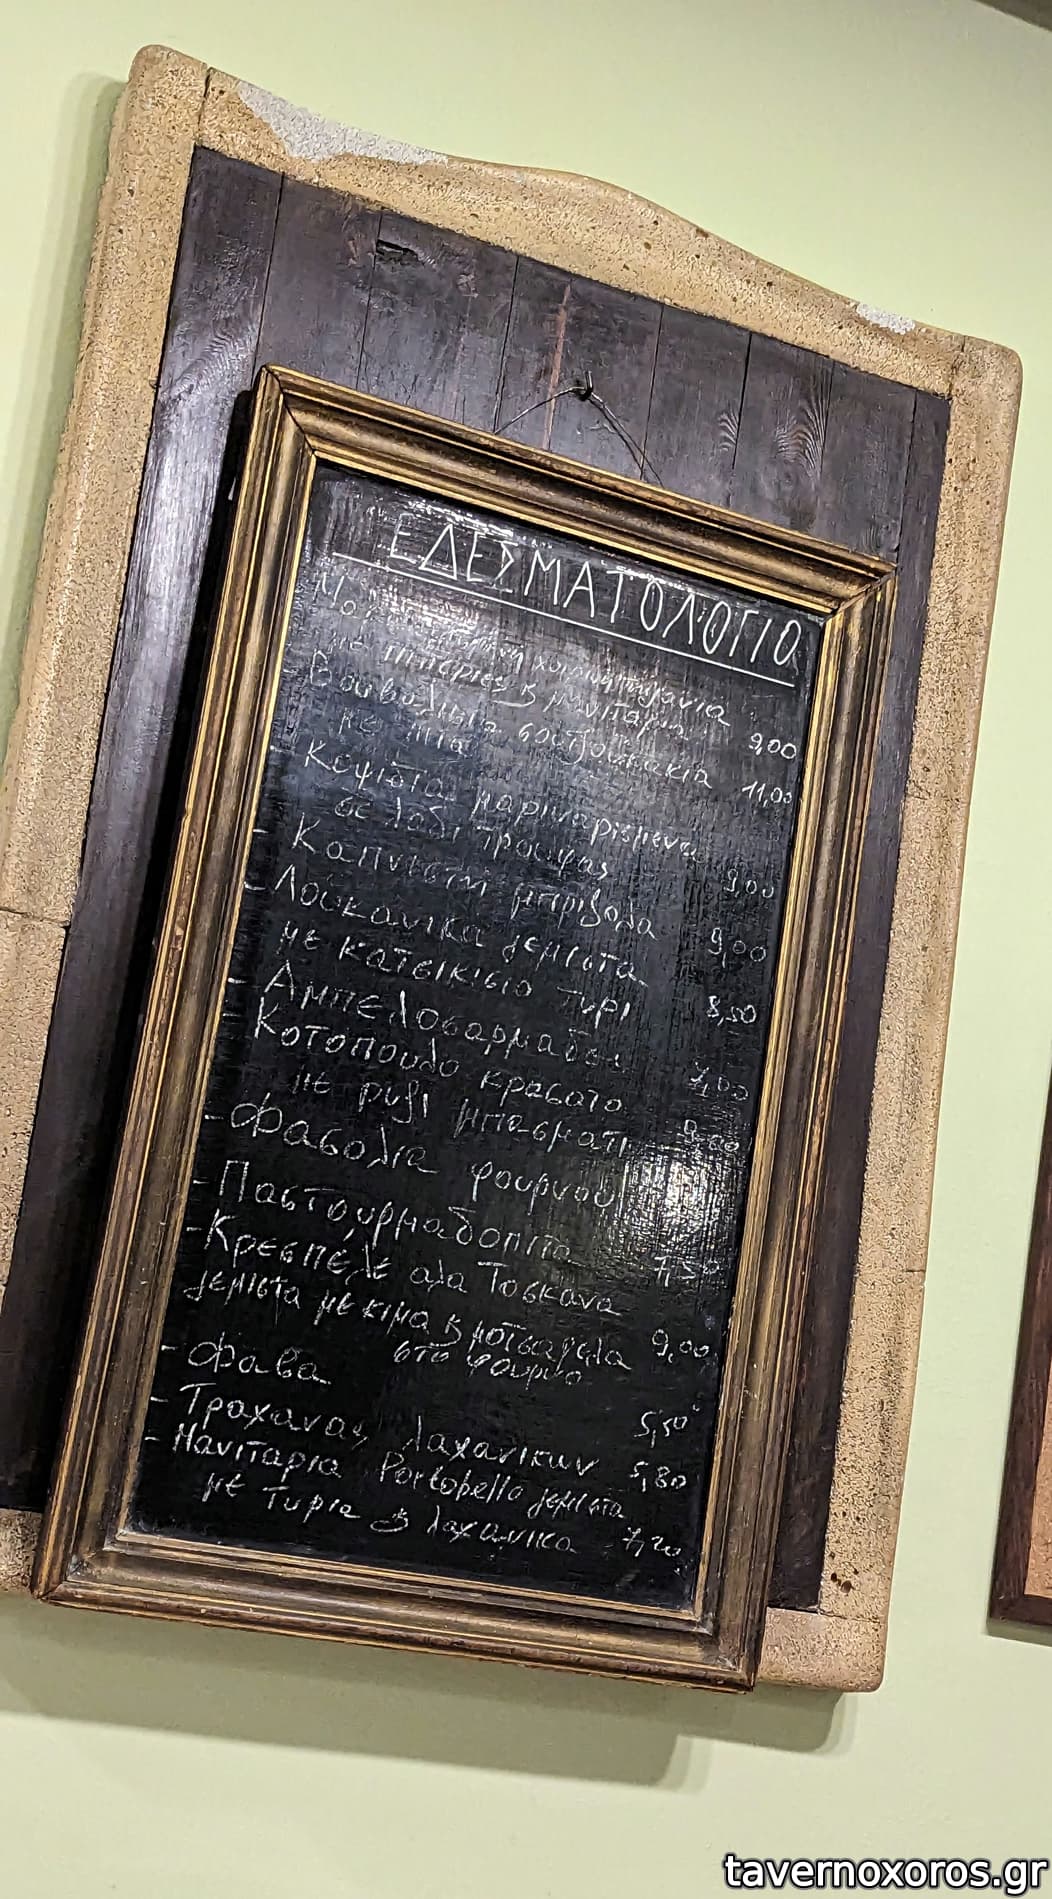 ΕΔΕΣΜΑΤΟΛΟΓΙΟ
χοιρινή τηγανια
με πιπεριες & μανιταρια 9,00
Βουβαλισια σουτζουκακια 11,00
με πιτα
- Κεφτεδ μαριναρισμενα
σε λαδι τρουφας 9,00
- Καπνιστη μπριζολα 9,00
- Λουκανικα γεμιστα
με κατσικισιο τυρι 8,50
- Αμπελοσαρμαδες 7,00
- Κοτοπουλο κρασατο
με ρυζι μπασματι
- Φασολια φουρνου
- Παστουρμαδοπιτα 7,50
- Κρεσπελε αλα Τοσκανα
γεμιστα με κιμα & μοτσαρελα 9,00
στο φουρνο
- Φαβα 5,50
- Τραχανας λαχανικων 5,80
- Μανιταρια Portobello γεμιστα
με τυρια & λαχανικα 7,20
tavernoxoros.gr